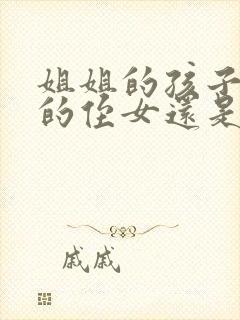 姐姐的孩子
的侄女還是
戚戚